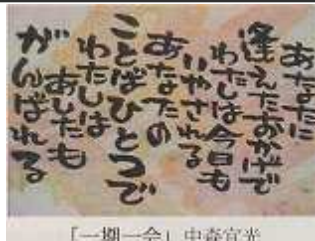 あなたに
逢えたおかげで
わたしは今日も
いやされる
あなたの
ことばひとつで
わたしは
あしたも
がんばれる
「一期一会」中森宜光